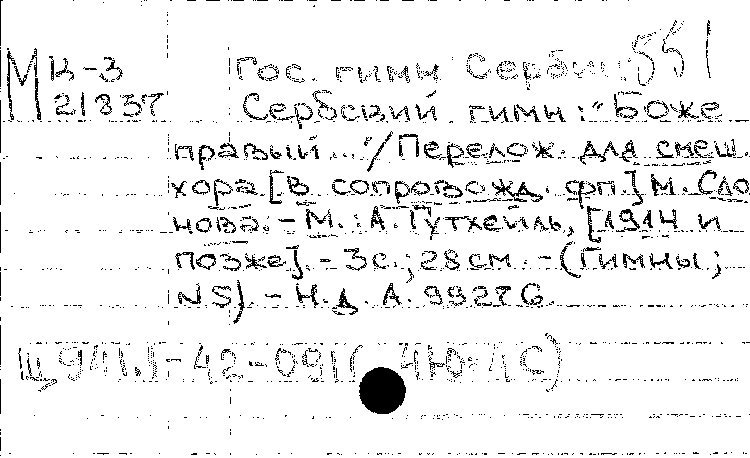 М К-3 Гос. гимн Сербии 551
21837 Сербский гимн: "Боже
правый..."/Перелож. для смеш.
хора [в сопровожд. фп.] М. Сло
нова. - М.: А. Гутхейль, [1914 и
позже]. - 3с.; 28см. - (Гимны;
N5). - Н.д. А. 9927 G.
Щ941.1-42-091( 4Ю-4С)